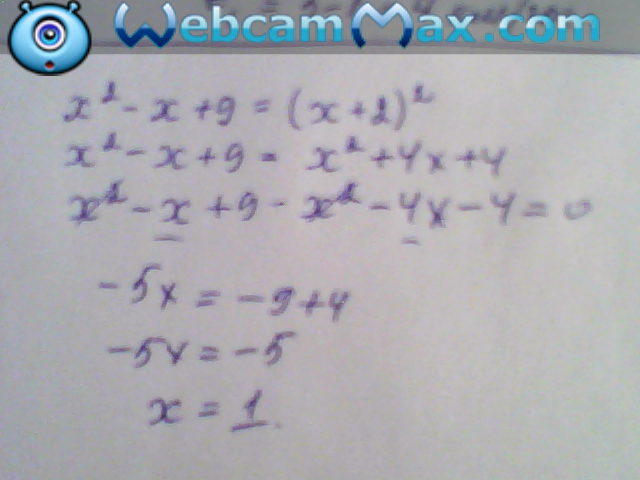 WebcamMax.com
x² - x + 9 = (x + 2)²
x² - x + 9 = x² + 4x + 4
x² - x + 9 - x² - 4x - 4 = 0
-5x = -9 + 4
-5x = -5
x = 1.